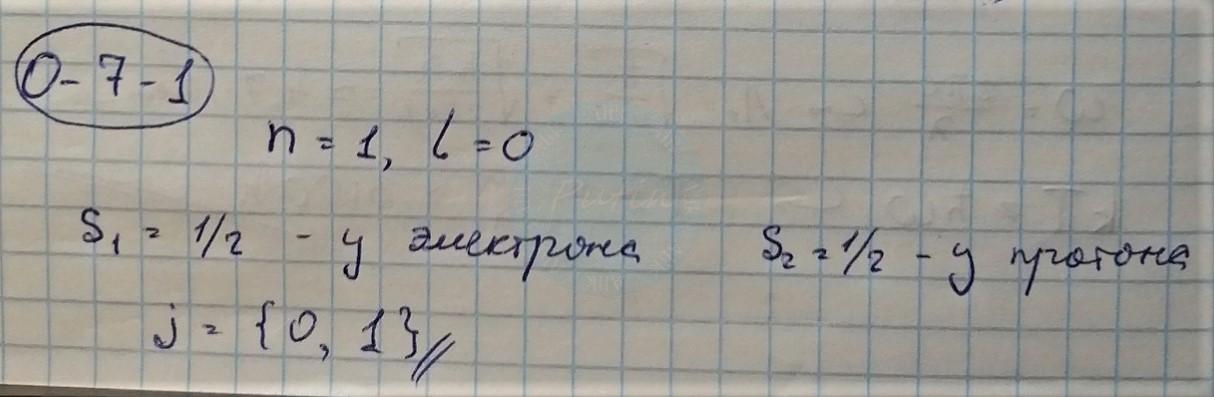 0-7-1
n = 1, l = 0
S₁ = 1/2 - у электрона S₂ = 1/2 - у протона
j = {0, 1}//